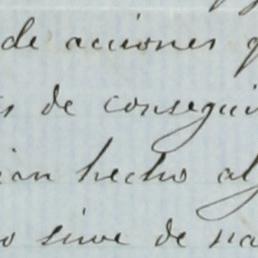 de acciones q
s de consegui
ian hecho alg
o sirve de na